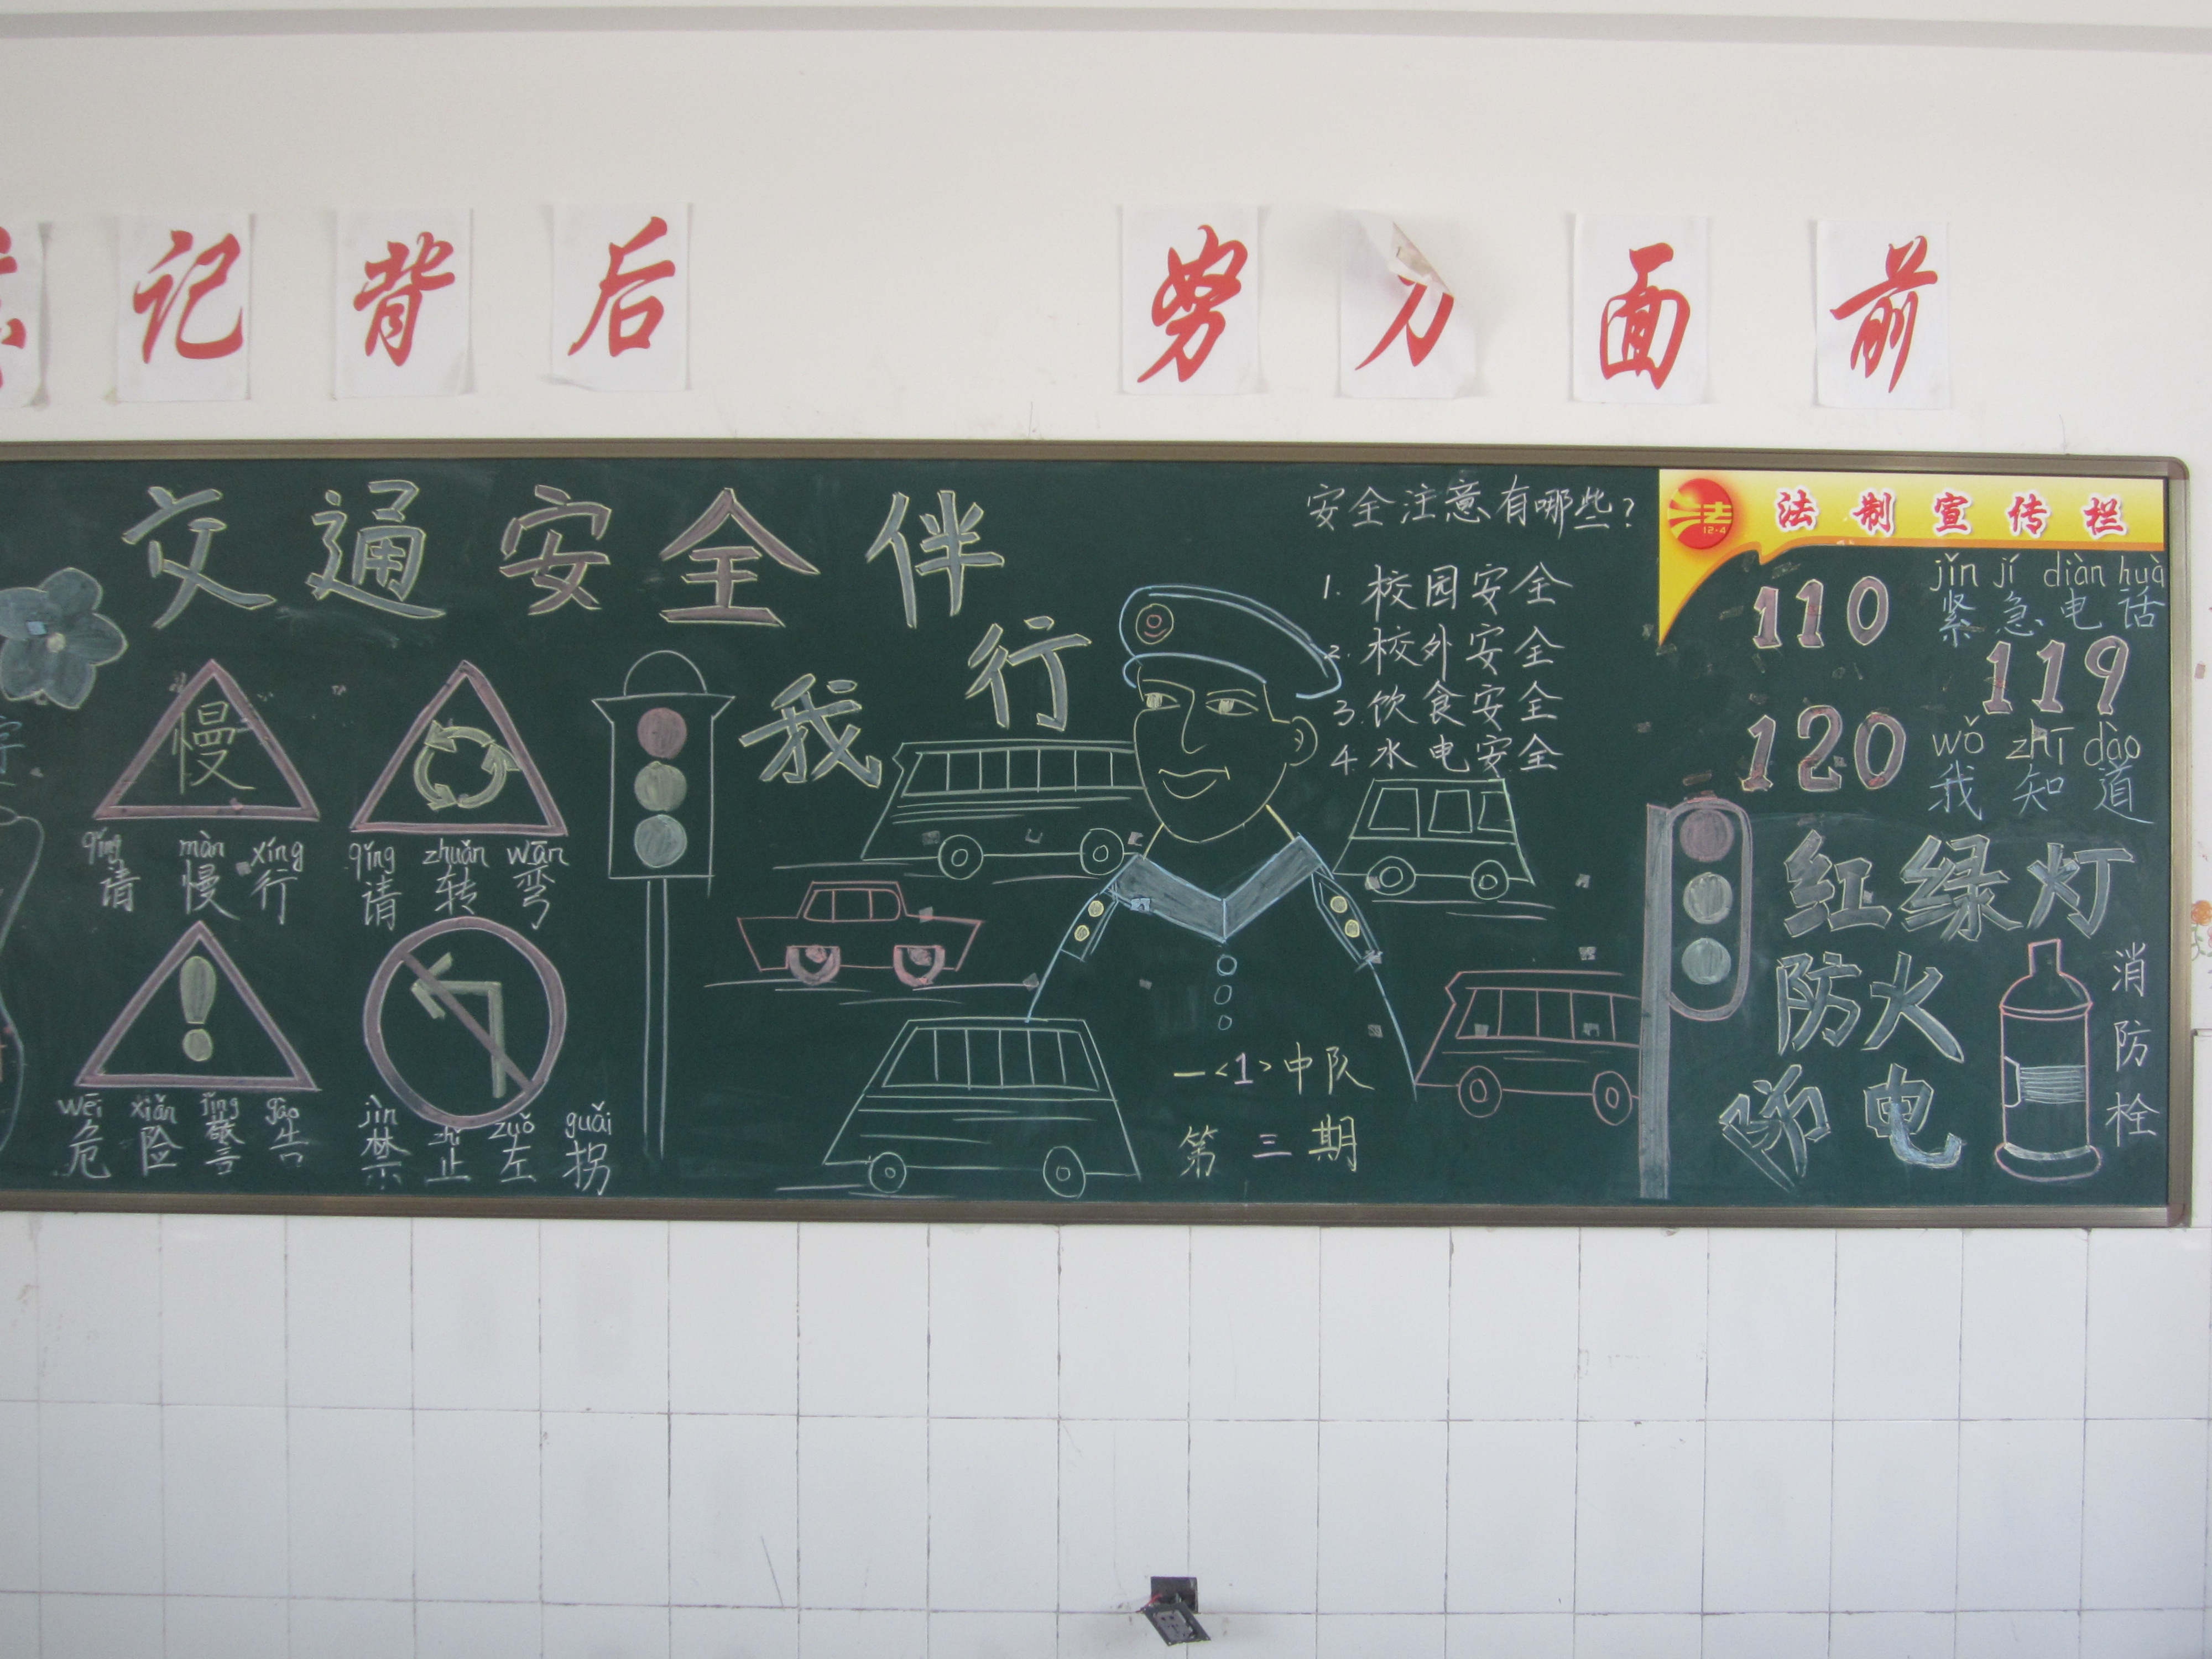 记背后 努力面前
交通安全伴
我行
慢
qǐng màn xíng
请慢行
qǐng zhuǎn wān
请转弯
wēi xiǎn jǐng gào
危险警告
jìn zhǐ zuǒ guǎi
禁止左拐
安全注意有哪些?
1. 校园安全
2. 校外安全
3. 饮食安全
4. 水电安全
一<1>中队
第三期
法
12-4
法制宣传栏
110
jǐn jí diàn huà
紧急电话
119
120
wǒ zhī dào
我知道
红绿灯
防火
防电
消防栓